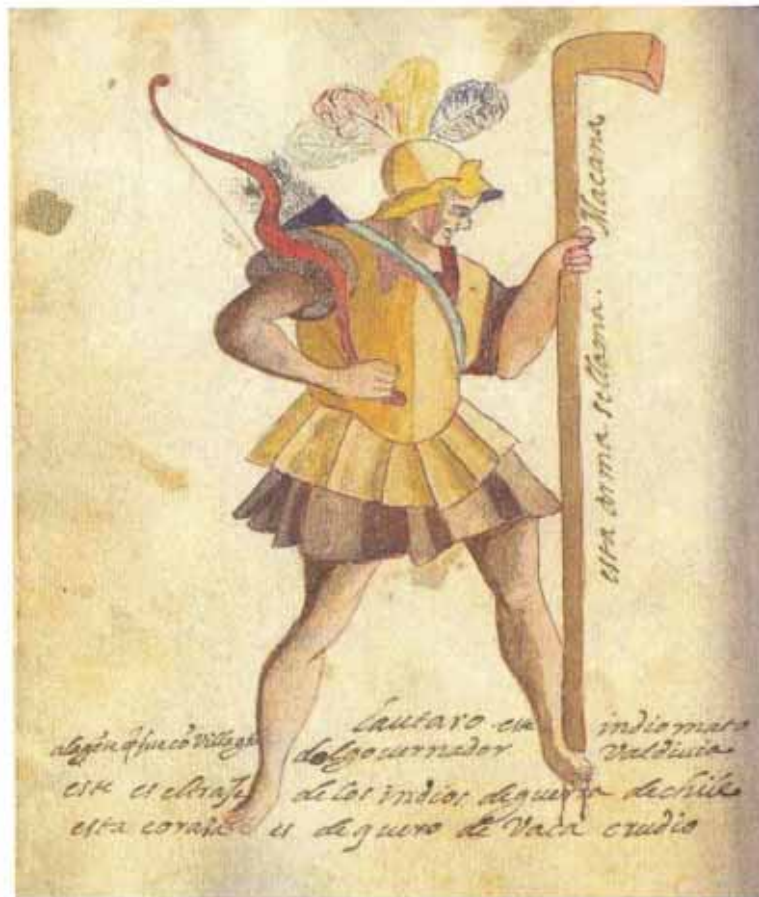 esta arma sellama. Macana
lautaro este indio mato
alagẽte q̃ fue cõ Villagra
del governador Valdivia
este es eltraje de los indios de guerra dechile
esta coraza es de quero de Vaca crudio